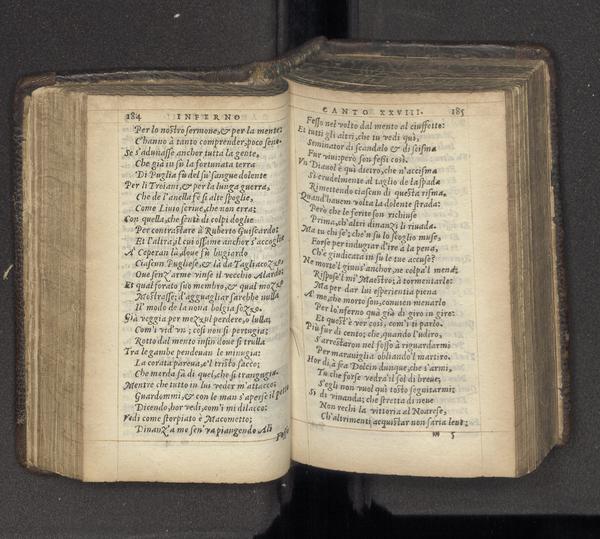 184 INFERNO
Per lo nostro sermone, & per la mente:
C'hanno à tanto comprender, poco seno.
Se s'adunasse anchor tutta la gente,
Che già in sù la fortunata terra
Di Puglia fù del su' sangue dolente
Per li Troiani, & per la lunga guerra,
Che de l'anella fè si alte spoglie,
Come Liuio scriue, che non erra:
Con quella, che sentè di colpi doglie
Per contrastare à Ruberto Guiscardo:
Et l'altra; il cui ossame anchor s'accoglie
A' Ceperan là, doue fù bugiardo
Ciascun Pugliese, & là da Tagliacozzo,
Oue senz'arme vinse il vecchio Alardo:
Et qual forato suo membro, & qual mozzo
Mostrasse; d'agguagliar sarebbe nulla
Il modo de la nona bolgia sozzo.
Già veggia per mezzul perdere, o lulla;
Com'i vid'vn; così non si pertugia;
Rotto dal mento insin doue si trulla
Tra le gambe pendeuan le minugia:
La corata pareua, e'l tristo sacco;
Che merda fà di quel, che si trangugia.
Mentre che tutto in lui veder m'attacco;
Guardommi, & con le man s'aperse il petto
Dicendo, hor vedi, com'i mi dilacco:
Vedi come storpiato è Macometto:
Dinanz'a me sen' va piangendo Alì
Fesso
CANTO XXVIII. 185
Fesso nel volto dal mento al ciuffetto:
Et tutti gli altri, che tu vedi quì,
Seminator di scandalo & di scisma
Fur viui: però son fessi così.
Vn Diauol è quà dietro, che n'accisma
Sì crudelmente al taglio de la spada
Rimettendo ciascun di questa risma,
Quand'hauem volta la dolente strada:
Però che le ferite son richiuse
Prima, ch'altri dinanzi li riuada.
Ma tu chi se'; che'n sù lo scoglio muse,
Forse per indugiar d'ire à la pena,
Ch'è giudicata in sù le tue accuse?
Ne morte'l giuns'anchor, ne colpa'l mena;
Rispose'l mi' Maestro; à tormentarlo:
Ma per dar lui esperientia piena
A' me, che morto son, conuien menarlo
Per lo'nferno quà giù di giro in giro:
Et quest'è ver così, com'i ti parlo.
Più fur di cento; che, quando l'udiro,
S'arrestaron nel fosso à riguardarmi
Per marauiglia obliando'l martiro.
Hor dì à fra Dolcin dunque, che s'armi,
Tu che forse vedra'il sol di breue,
S'egli non vuol quì tosto seguitarmi;
Sì di viuanda; che stretta di neue
Non rechi la vittoria al Noarese,
Ch'altrimenti acquistar non saria leue:
m 5